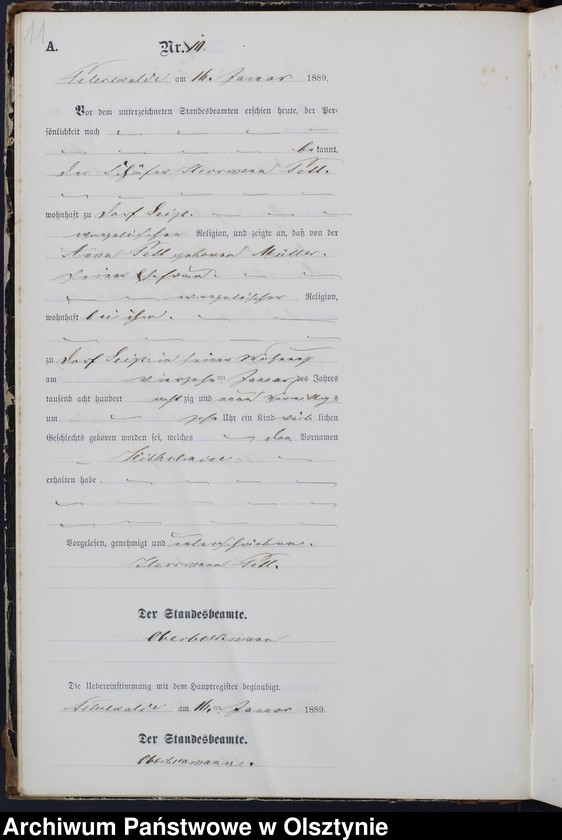 11
A.
Nr. 11.
Peterswalde am 16. Januar 1889.
Vor dem unterzeichneten Standesbeamten erschien heute, der Per-
sönlichkeit nach
bekannt,
der Herrmann
wohnhaft zu Dorf Leip.
evangelischer Religion, und zeigte an, daß von der
Anna geborenen Müller.
seiner Ehefrau.
evangelischer Religion,
wohnhaft bei ihm.
zu Dorf Leip in seiner Wohnung
am vierzehnten Januar des Jahres
tausend acht hundert achtzig und neun Vormittags
um zehn Uhr ein Kind weiblichen
Geschlechts geboren worden sei, welches den Vornamen
Wilhelmine
erhalten habe.
Vorgelesen, genehmigt und unterschrieben.
Herrmann
Der Standesbeamte.
Die Uebereinstimmung mit dem Hauptregister beglaubigt.
Peterswalde am 16. ten Januar 1889.
Der Standesbeamte.
Archiwum Państwowe w Olsztynie